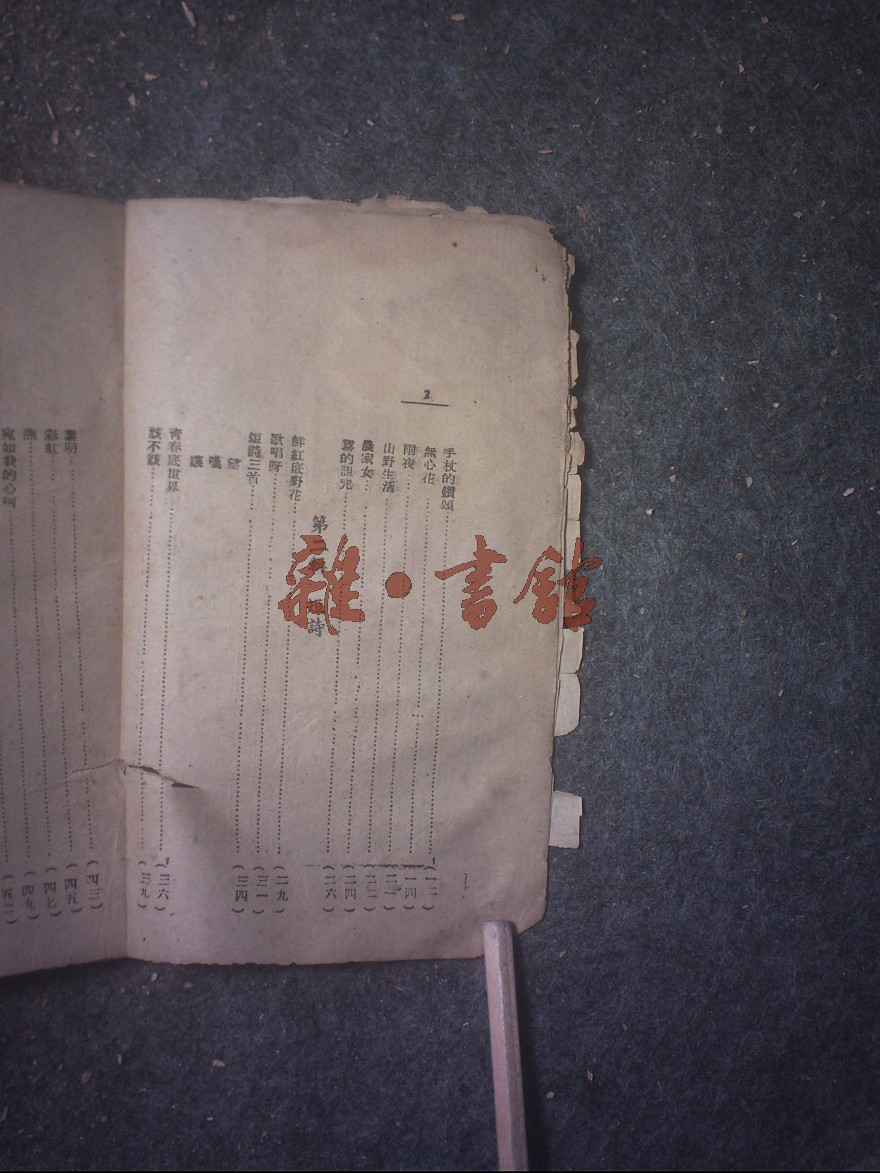 2
手杖的讚頌 (一二)
無心花 (一四)
雨夜 (二一)
山野生活 (二二)
農家女 (二四)
霧的詛咒 (二六)
第二 短詩
鮮紅底野花 (二九)
歌唱呀 (三一)
短詩三首 (三四)
望
嘆
青春底世界 (三六)
該不該 (三九)
黎明 (四三)
彩虹 (四五)
燕 (四七)
宛如我的心呵 (四九)
(五二)
雜·書館